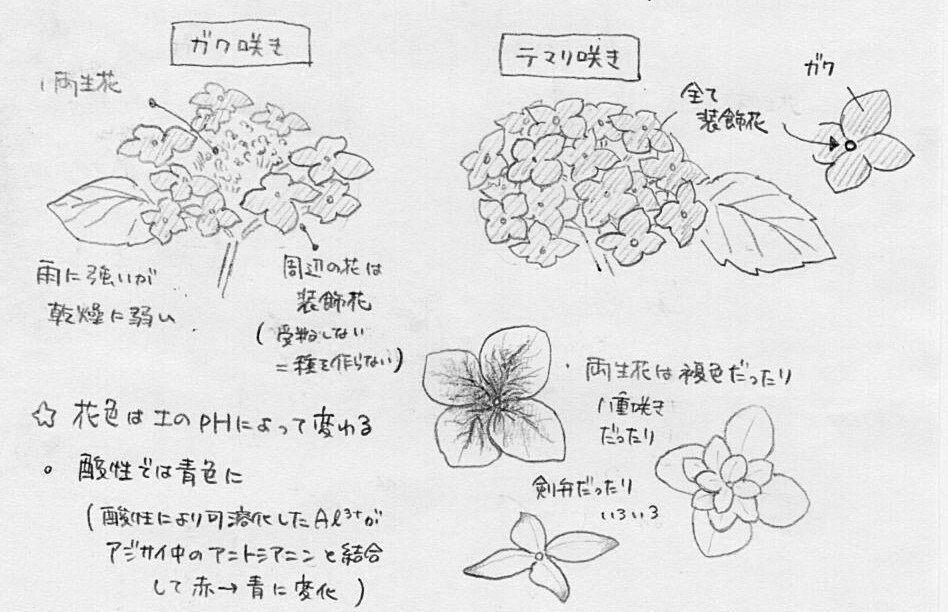 ガク咲き
両生花
雨に強いが
乾燥に弱い
周辺の花は
装飾花
(受粉しない
=種を作らない)
テマリ咲き
全て
装飾花
ガク
☆ 花色は土のpHによって変わる
○ 酸性では青色に
(酸性により可溶化したAl³⁺が
アジサイ中のアントシアニンと結合
して赤→青に変化)
・両生花は複色だったり
八重咲き
だったり
剣弁だったり
いろいろ